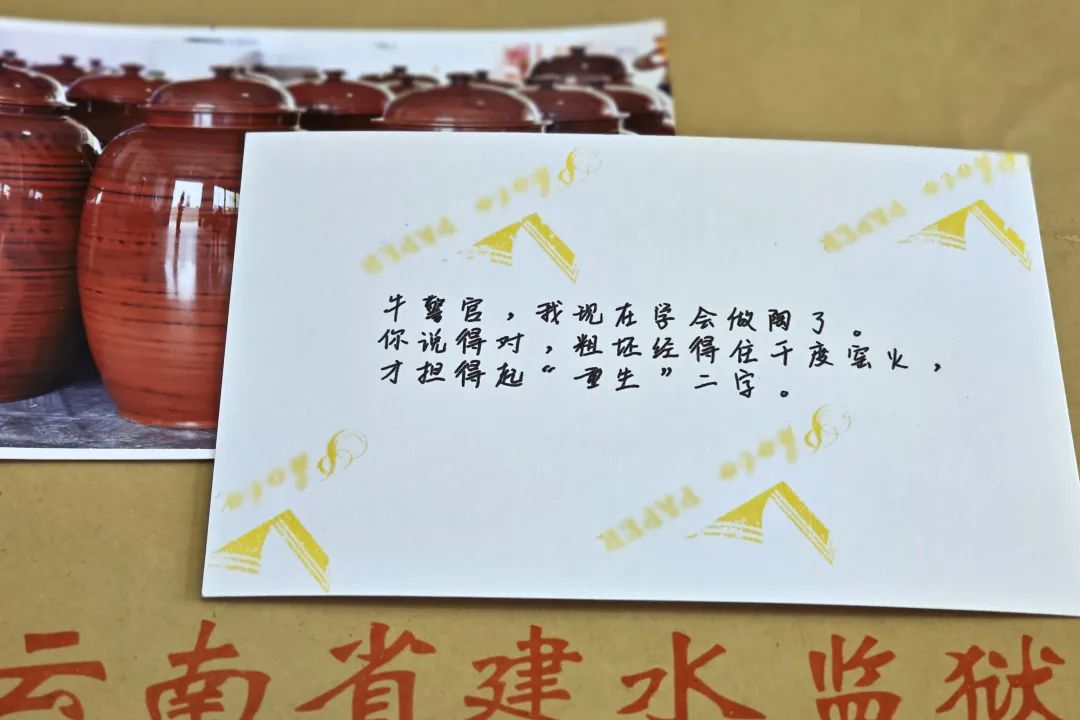 Photo PAPER
Photo PAPER
牛警官，我现在学会做陶了。
你说得对，粗坯经得住千度窑火，
才担得起“重生”二字。
Photo
Photo PAPER
云南省建水监狱